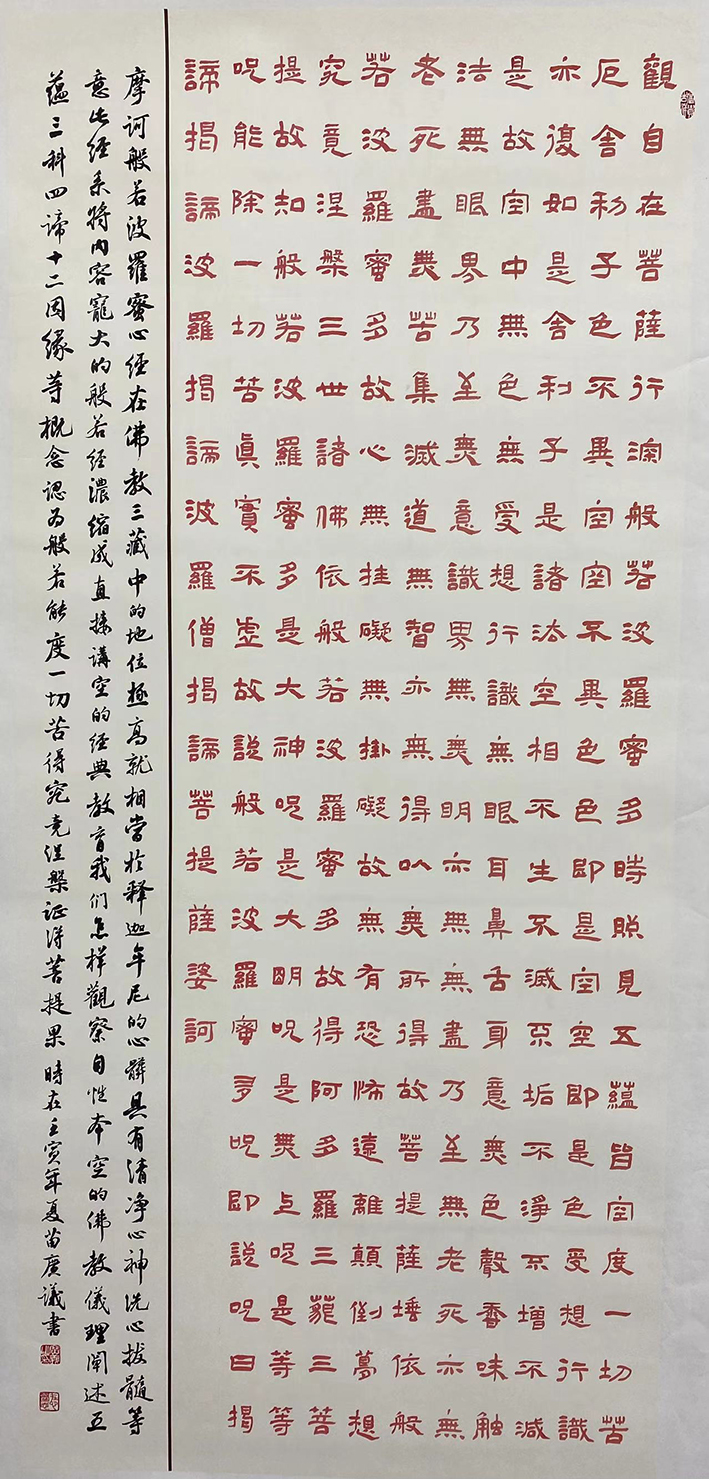 觀自在菩薩行深般若波羅蜜多時照見五蘊皆空度一切苦
厄舍利子色不異空空不異色色即是空空即是色受想行識
亦復如是舍利子是諸法空相不生不滅不垢不淨不增不減
是故空中無色無受想行識無眼耳鼻舌身意無色聲香味触
法無眼界乃至無意識界無無明亦無無盡乃至無老死亦無
老死盡無苦集滅道無智亦無得以無所得故菩提薩埵依般
若波羅蜜多故心無挂礙無掛礙故無有恐怖遠離顛倒夢想
究竟涅槃三世諸佛依般若波羅蜜多故得阿多羅三藐三菩
提故知般若波羅蜜多是大神咒是大明咒是無上咒是等等
咒能除一切苦真實不虛故說般若波羅蜜多咒即說咒曰揭
諦揭諦波羅揭諦波羅僧揭諦菩提薩婆訶
摩訶般若波羅蜜心經在佛教三藏中的地位極高就相當於释迦牟尼的心髒具有清净心神洗心拔髓等
意此經系將内容寵大的般若經濃缩成直接講空的經典教育我们怎样觀察自性本空的佛教儀理闡述五
蕴三科四谛十二因緣等概念認为般若能度一切苦得究竟涅槃证得菩提果時在壬寅年夏苗廣議書